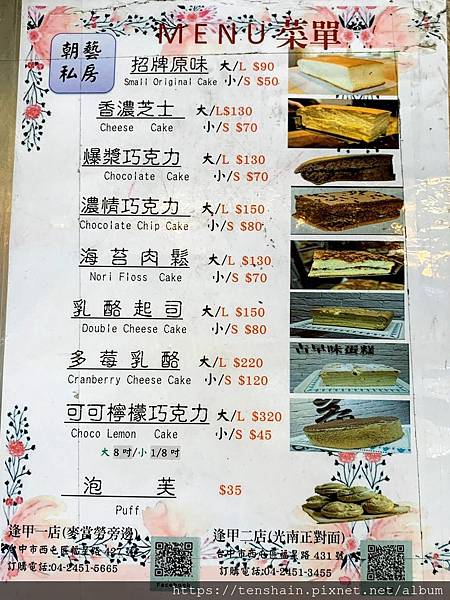 朝藝
私房
MENU 菜單
招牌原味 大/L $90
Small Original Cake 小/S $50
香濃芝士 大/L$130
Cheese Cake 小/S $70
爆漿巧克力 大/L $130
Chocolate Cake 小/S $70
濃情巧克力 大/L $150
Chocolate Chip Cake 小/S $80
海苔肉鬆 大/L $130
Nori Floss Cake 小/S $70
乳酪起司 大/L $150
Double Cheese Cake 小/S $80
古早味蛋糕
多莓乳酪 大/L $220
Cranberry Cheese Cake 小/S $120
可可檸檬巧克力 大/L $320
Choco Lemon Cake 小/S $45
大8吋/小1/8吋
泡芙 $35
Puff
逢甲一店(麥當勞旁邊)
台中市西屯區福星路
訂購電話:04-2451-5665
逢甲二店(光南正對面)
台中市西屯區福星路 431號
訂購電話:04-2451-3455
Facebook
https://tenshain.pixnet.net/album